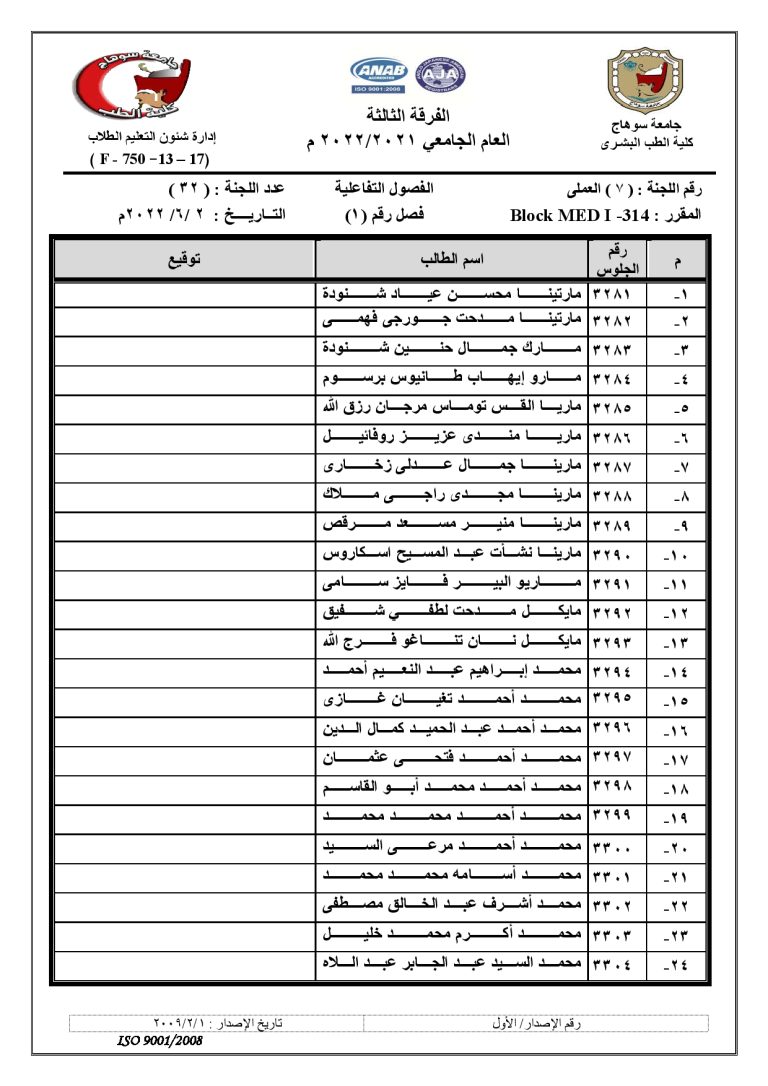 جامعة سوهاج
كلية الطب
ANAB
ACCREDITED
ISO 9001:2008
AJA
ANGLO JAPANESE AMERICAN
REGISTRARS
جامعة سوهاج
الفرقة الثالثة
العام الجامعي ٢٠٢٢/٢٠٢١ م
جامعة سوهاج
كلية الطب البشرى
إدارة شئون التعليم الطلاب
( F - 750 –13 – 17)
رقم اللجنة : ( ٧ ) العملى الفصول التفاعلية عدد اللجنة : ( ٣٢ )
المقرر : Block MED I -314 فصل رقم (١) التاريخ : ٢ /٦/ ٢٠٢٢م
م رقم الجلوس اسم الطالب توقيع
١- ٣٢٨١ مارتينا محسن عياد شنودة
٢- ٣٢٨٢ مارتينا مدحت جورجى فهمى
٣- ٣٢٨٣ مارك جمال حنين شنودة
٤- ٣٢٨٤ مارو إيهاب طانيوس برسوم
٥- ٣٢٨٥ ماريا القس توماس مرجان رزق الله
٦- ٣٢٨٦ ماريا مندى عزيز روفائيل
٧- ٣٢٨٧ مارينا جمال عدلى زخارى
٨- ٣٢٨٨ مارينا مجدى راجى ملاك
٩- ٣٢٨٩ مارينا منير مسعد مرقص
١٠- ٣٢٩٠ مارينا نشأت عبد المسيح اسكاروس
١١- ٣٢٩١ ماريو البير فايز سامى
١٢- ٣٢٩٢ مايكل مدحت لطفي شفيق
١٣- ٣٢٩٣ مايكل نان تناغو فرج الله
١٤- ٣٢٩٤ محمد إبراهيم عبد النعيم أحمد
١٥- ٣٢٩٥ محمد أحمد تغيان غازى
١٦- ٣٢٩٦ محمد أحمد عبد الحميد كمال الدين
١٧- ٣٢٩٧ محمد أحمد فتحى عثمان
١٨- ٣٢٩٨ محمد أحمد محمد أبو القاسم
١٩- ٣٢٩٩ محمد أحمد محمد محمد
٢٠- ٣٣٠٠ محمد أحمد مرعى السيد
٢١- ٣٣٠١ محمد أسامه محمد محمد
٢٢- ٣٣٠٢ محمد أشرف عبد الخالق مصطفى
٢٣- ٣٣٠٣ محمد أكرم محمد خليل
٢٤- ٣٣٠٤ محمد السيد عبد الجابر عبد اللاه
رقم الإصدار/ الأول تاريخ الإصدار : ٢٠٠٩/٢/١
ISO 9001/2008